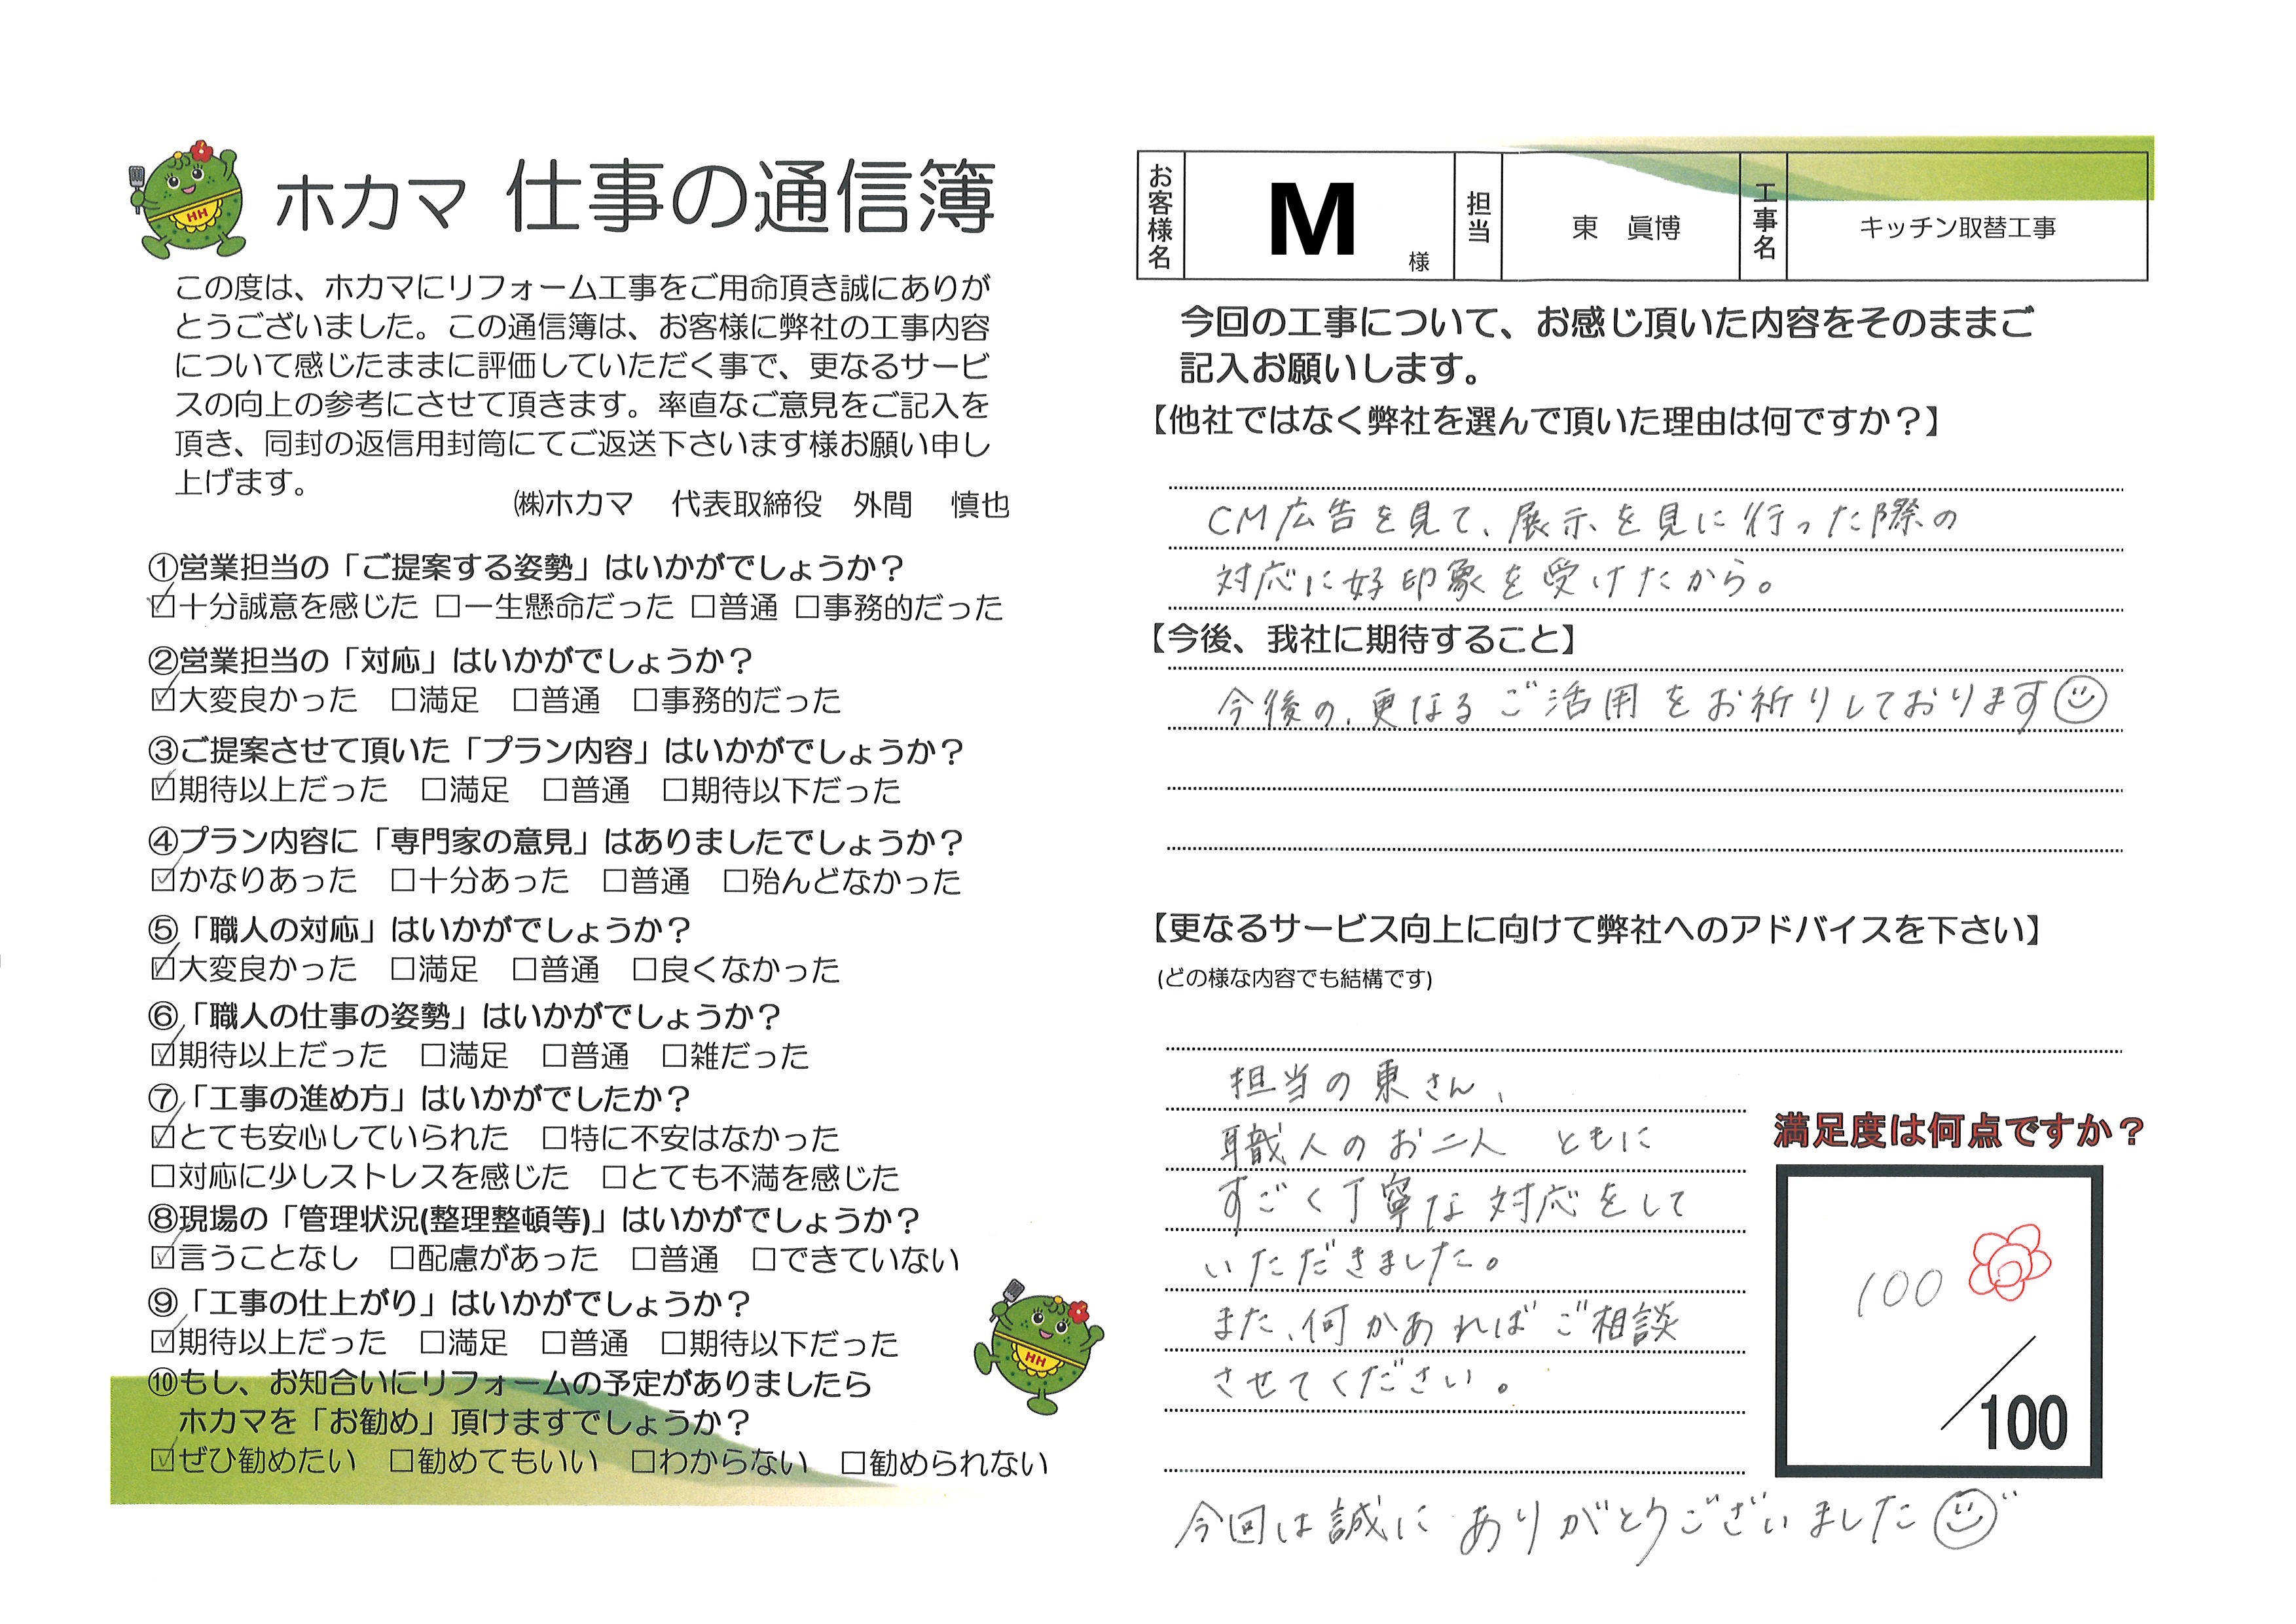 ホカマ 仕事の通信簿
この度は、ホカマにリフォーム工事をご用命頂き誠にありが
とうございました。この通信簿は、お客様に弊社の工事内容
について感じたままに評価していただく事で、更なるサービ
スの向上の参考にさせて頂きます。率直なご意見をご記入を
頂き、同封の返信用封筒にてご返送下さいます様お願い申し
上げます。
㈱ホカマ 代表取締役 外間 慎也
①営業担当の「ご提案する姿勢」はいかがでしょうか？
☑十分誠意を感じた □一生懸命だった □普通 □事務的だった
②営業担当の「対応」はいかがでしょうか？
☑大変良かった □満足 □普通 □事務的だった
③ご提案させて頂いた「プラン内容」はいかがでしょうか？
☑期待以上だった □満足 □普通 □期待以下だった
④プラン内容に「専門家の意見」はありましたでしょうか？
☑かなりあった □十分あった □普通 □殆んどなかった
⑤「職人の対応」はいかがでしょうか？
☑大変良かった □満足 □普通 □良くなかった
⑥「職人の仕事の姿勢」はいかがでしょうか？
☑期待以上だった □満足 □普通 □雑だった
⑦「工事の進め方」はいかがでしたか？
☑とても安心していられた □特に不安はなかった
□対応に少しストレスを感じた □とても不満を感じた
⑧現場の「管理状況(整理整頓等)」はいかがでしょうか？
☑言うことなし □配慮があった □普通 □できていない
⑨「工事の仕上がり」はいかがでしょうか？
☑期待以上だった □満足 □普通 □期待以下だった
⑩もし、お知合いにリフォームの予定がありましたら
ホカマを「お勧め」頂けますでしょうか？
☑ぜひ勧めたい □勧めてもいい □わからない □勧められない
HH
HH
お客様名 M 様 担当 東 眞博 工事名 キッチン取替工事
今回の工事について、お感じ頂いた内容をそのままご
記入お願いします。
【他社ではなく弊社を選んで頂いた理由は何ですか？】
CM広告を見て、展示を見に行った際の
対応に好印象を受けたから。
【今後、我社に期待すること】
今後の、更なるご活用をお祈りしております☺
【更なるサービス向上に向けて弊社へのアドバイスを下さい】
(どの様な内容でも結構です)
担当の東さん、
職人のお二人 ともに
すごく丁寧な対応をして
いただきました。
また、何かあればご相談
させてください。
満足度は何点ですか？
100
/100
今回は誠にありがとうございました☺